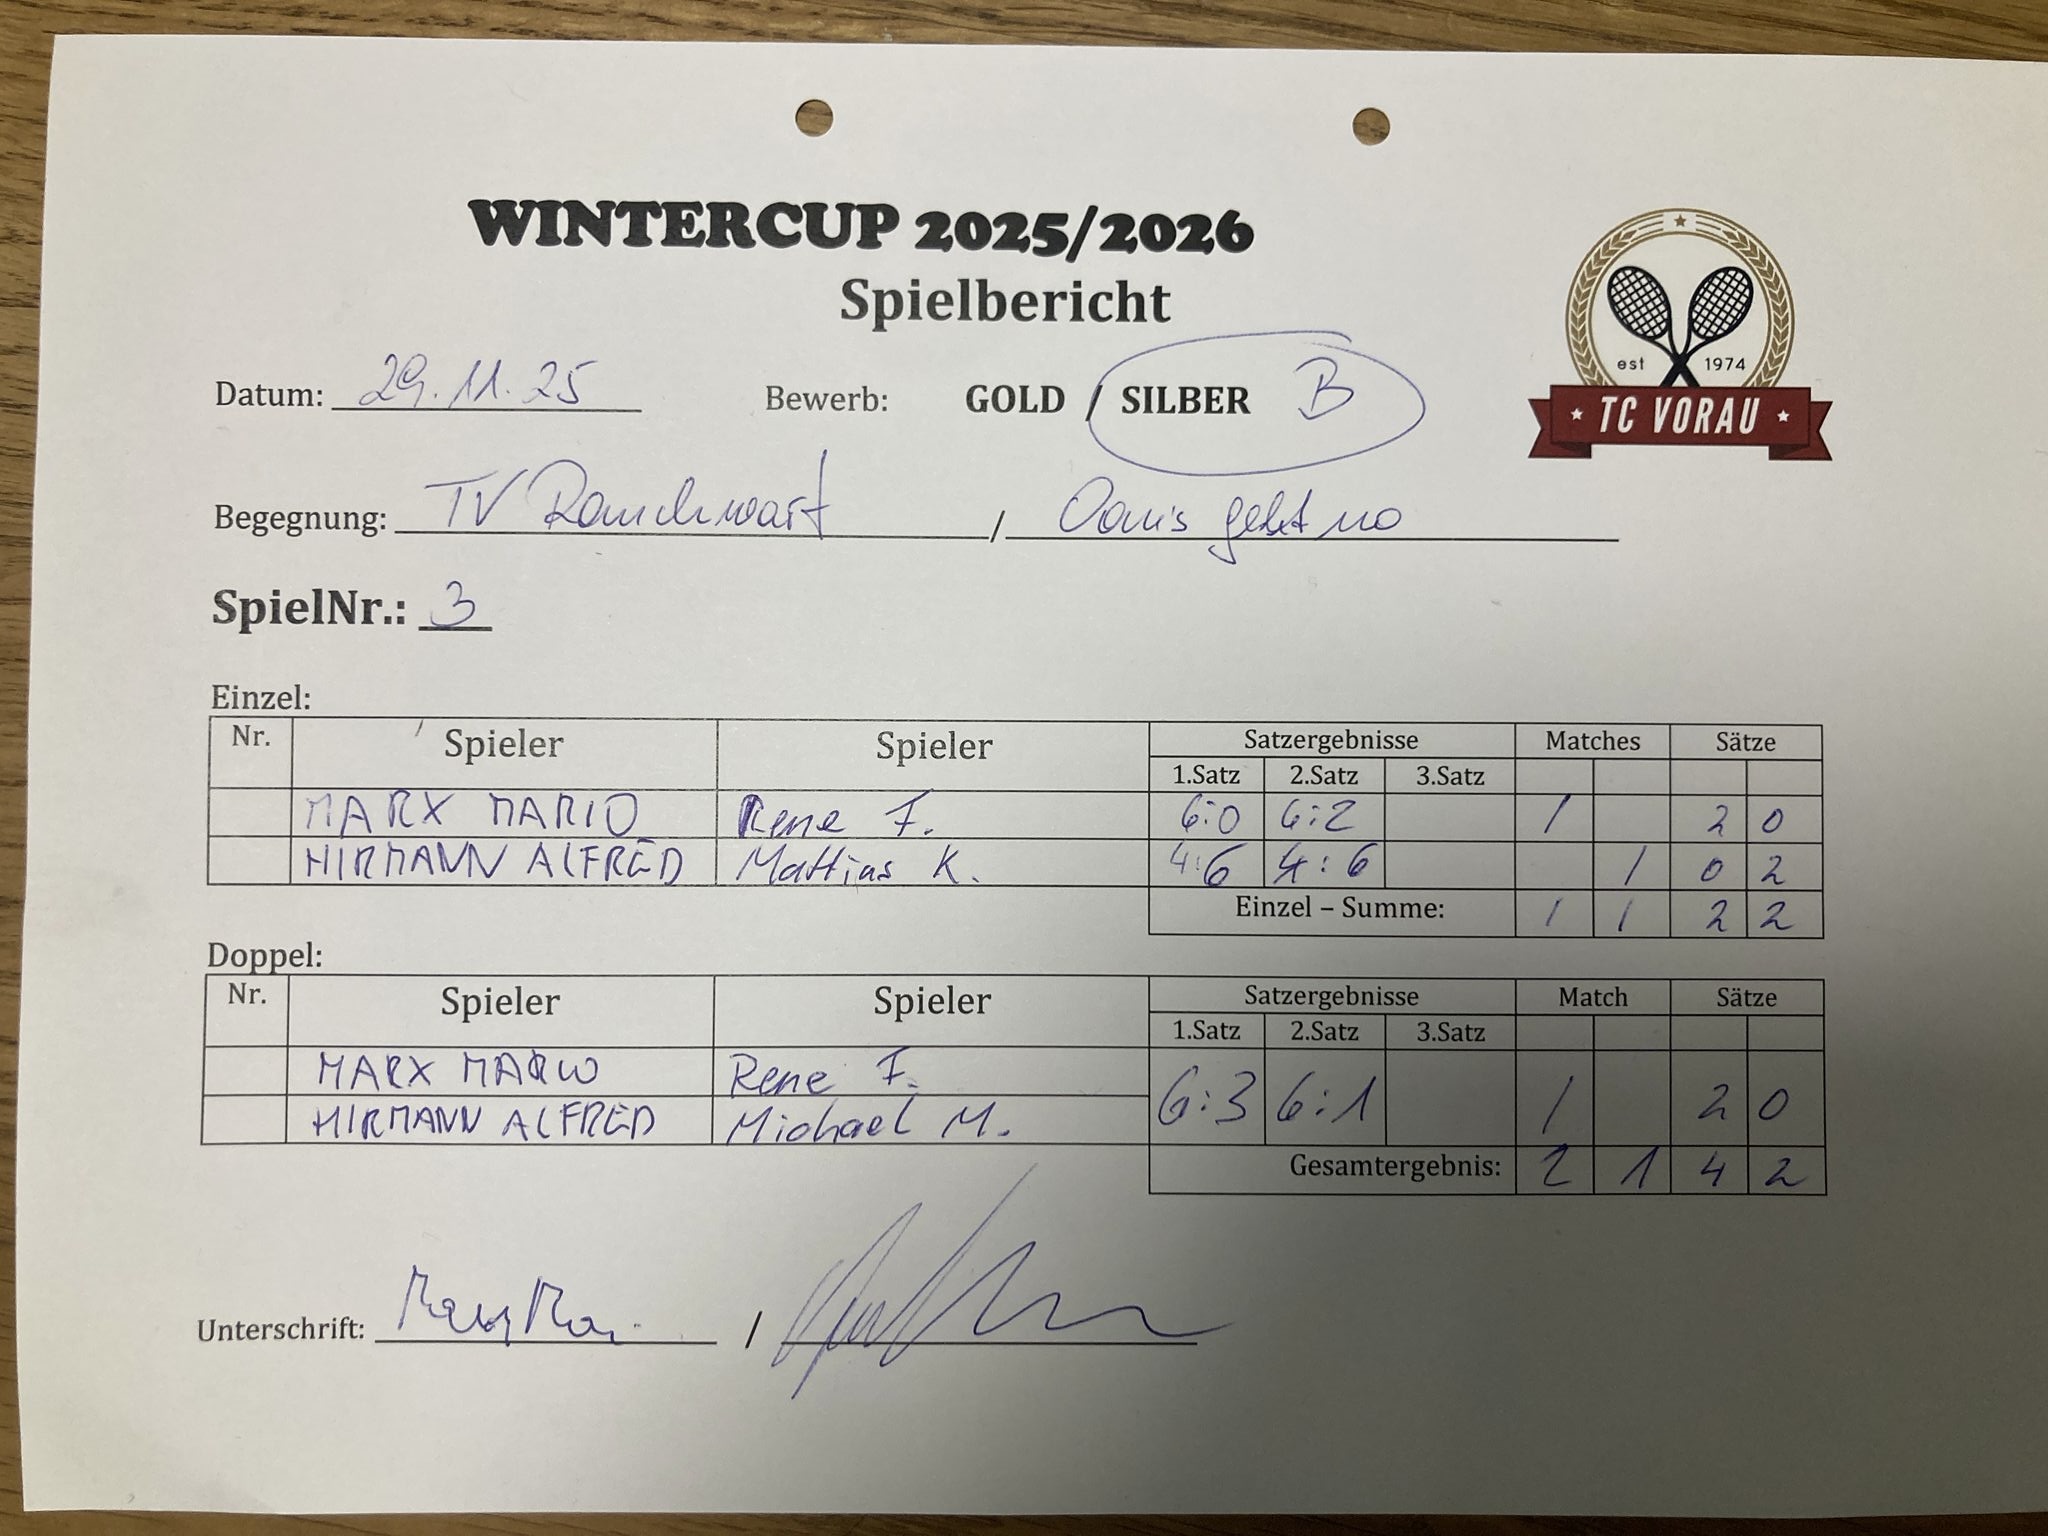 WINTERCUP 2025/2026
Spielbericht
est 1974
TC VORAU
Datum: 29.11.25 Bewerb: GOLD / SILBER B
Begegnung: TV Rauchwart / Oans geht no
SpielNr.: 3
Einzel:
Nr. Spieler Spieler Satzergebnisse Matches Sätze
1.Satz 2.Satz 3.Satz
MARX MARIO Rene F. 6:0 6:2 1 2 0
HIRMANN ALFRED Mattias K. 4:6 4:6 1 0 2
Einzel – Summe: 1 1 2 2
Doppel:
Nr. Spieler Spieler Satzergebnisse Match Sätze
1.Satz 2.Satz 3.Satz
MARX MARIO Rene F. 6:3 6:1 1 2 0
HIRMANN ALFRED Michael M.
Gesamtergebnis: 2 1 4 2
Unterschrift: /